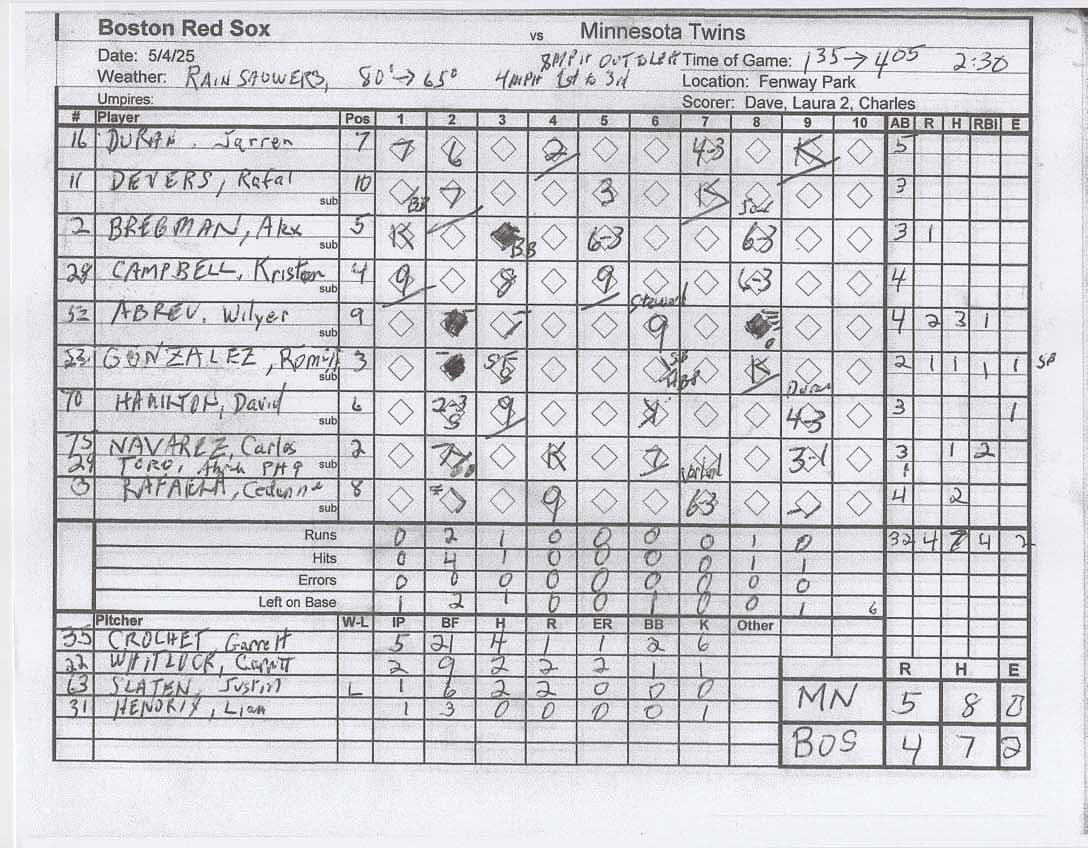 Boston Red Sox vs Minnesota Twins
Date: 5/4/25 8MPH OUT TO LEFT Time of Game: 1 35 → 4 05 2:30
Weather: RAIN SHOWERS, 80° → 65° 4MPH 1st to 3rd Location: Fenway Park
Umpires: Scorer: Dave, Laura 2, Charles
# Player Pos 1 2 3 4 5 6 7 8 9 10 AB R H RBI E
16 DURAN, Jarren 7 7 6 2 4-3 K 5
11 DEVERS, Rafal 10 BB 7 3 K 3
sub
2 BREGMAN, Alex 5 K BB 6-3 6-3 3 1
sub
28 CAMPBELL, Kriston 4 9 8 9 6-3 4
sub
52 ABREU, Wilyer 9 9 4 2 3 1
sub
23 GONZALEZ, Romy 3 5 SB HBP K 2 1 1 1 1 SB
sub
70 HAMILTON, David 6 2-3 S 9 K 4-3 3 1
sub
75 NAVAREZ, Carlos 2 7 K 7 3-1 3 1 2
29 TORO, PH9 sub 1
3 RAFAELA, Cedanne 8 9 6-3 4 2
sub
Runs 0 2 1 0 0 0 0 1 0 32 4 7 4 2
Hits 0 4 1 0 0 0 0 1 1
Errors 0 0 0 0 0 0 0 0 0
Left on Base 1 2 1 0 0 1 0 0 1 6
Pitcher W-L IP BF H R ER BB K Other
35 CROCHET, Garrett 5 21 4 1 1 2 6
22 WHITLOCK, Garrett 2 9 2 2 2 1 1 R H E
63 SLATEN, Justin L 1 6 2 2 0 0 0 MN 5 8 0
31 HENDRIX, Liam 1 3 0 0 0 0 1
BOS 4 7 2